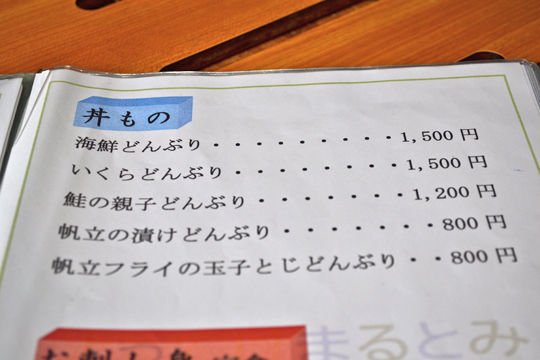 丼もの
海鮮どんぶり・・・・・・・・・・1,500円
いくらどんぶり・・・・・・・・・1,500円
鮭の親子どんぶり・・・・・・・・1,200円
帆立の漬けどんぶり・・・・・・・800円
帆立フライの玉子とじどんぶり・・800円
まるとみ